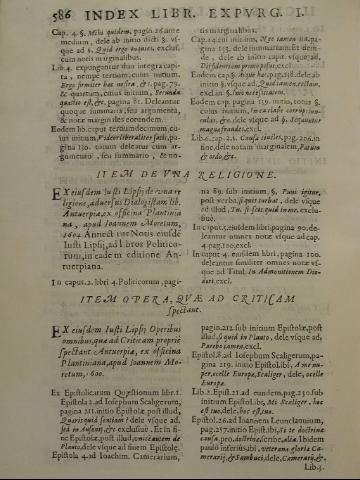 586 INDEX LIBR. EXPVRG. I.
Cap. 4. §. Mihi quidem, pagin. 26. ante
medium, dele ab initio dicti §. vs-
que ad §. Quid ergo inquies, exclus.
cum notis marginalibus.
Lib. 4. expungantur duo integra capi-
ta, nempe tertium, cuius initium.
Ergo firmiter hæc nostra, &c. pag. 79.
& quartum, cuius initium, Secunda
quæstio est, &c. pagina 81. Deleantur
quoque summaria, seu argumenta,
& notæ margin. les eorundem.
Eodem lib. expun. tertium decimum, cu-
ius initium, Videor liberaliter fassus, pa-
gina 130. unum deleatur cum ar-
gumento, seu summario, & no-
tis marginalibus.
Cap. 14. cui initium,
pagina 153. dele summarium. Et dein-
de, dele ab initio capit. vsque ad,
Et fidentium primo posui, excl.
Eodem cap. §. dele ab
initio §. vsque ad, Quid tamen,
excl. in §.
Eodem cap. pagina 159.
cuius initium,
&c. dele vsque ad §. Sequuntur
magna fraudes, excl.
Lib. 6. cap. 2. §. pag. 206. in
fine, dele notam marginalem, Fatum
& ordo, &c.
ITEM DE VNA RELIGIONE.
EX eiusdem Iusti Lipsij de vna re-
ligione, aduersus Dialogistam lib.
Antuerpiæ, ex officina Plantinia-
na, apud Ioannem Moretum,
1604. Annectitur Notis eiusdē
Iusti Lipsij, ad libros Politico-
rum, in eadem editione An-
tuerpiana.
In caput. 2. libri 4. Politicorum, pagi-
na 89. sub initium, §. Puni igitur,
post verba, si quis turbat, dele vsque
ad illud, Tu, si scis, quid inme, exclu-
siuè.
In caput 3. eiusdem libri pagina 90. de-
leantur omnes notæ vsque ad cap.
4. pag. 100. excl.
In caput 4. eiusdem libri, pagina 100.
deleantur similiter omnes notæ vs-
que ad Titul. In Admonitionem Dia-
dori, excl.
ITEM OPERA, QVÆ AD CRITICAM
spectant.
EX eiusdem Iusti Lipsij Operibus
omnibus, quæ ad Criticam propriè
spectant Antuerpiæ, ex officina
Plantiniana, apud Ioannem Mo-
retum, 1600.
Ex Epistolicarum Quæstionum libr. 1.
Epistola 2. ad Iosephum Scaligerum,
pagina 211. initio Epistolæ, post illud,
Quæris quid sentiam? dele vsque ad,
sed in Ausum, &c. exclusiuè. Et in fi-
ne Epistolæ, post illud, vincitamen de
Plauto, dele vsque ad finem Epistolæ.
Epistola 4. ad Ioachim. Camerarium,
pagin. 212. sub initium Epistolæ, post
illud, §. quid in Plauto, dele vsque ad,
Parebo tamen, excl.
Epistol. 8. ad Iosephum Scaligerum,
pagina 219. initio Epistol. ibi, A me nu-
per, ocelle Europæ, Scaliger, dele, ocelle
Europæ.
Lib. 2. Epist. 21. ad eundem, pag. 230. sub
initium Epistol. ibi, Mi Scaliger, hoc
est tuo, dele, hoc est tuo.
Epistol. 26. ad Ioannem Leunclauium,
pag. 257. initio Epist. ibi, Si te doctrina
causa, pro, doctrinæ, scribe, alia. Ibidem
paulò inferius, ibi, veterana gloria Ca-
merarij, & Sambuci, dele, Camerarij, &
Lib. 3.